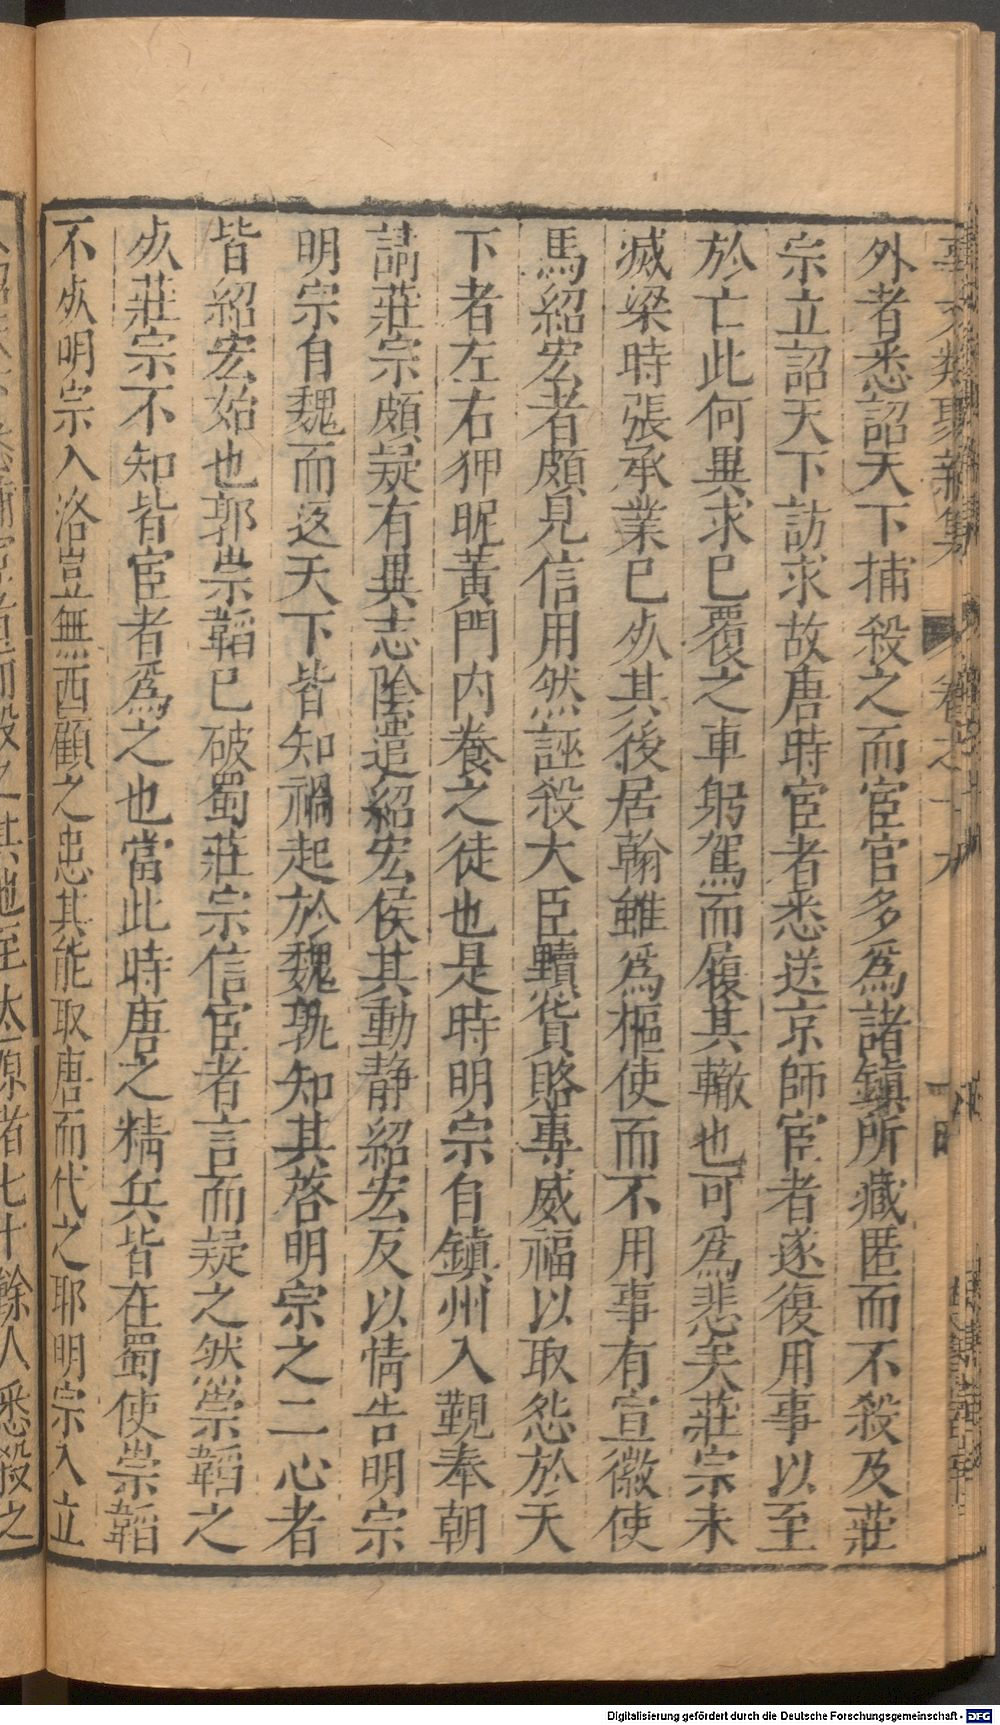 外者悉詔天下捕殺之而宦官多爲諸鎮所藏匿而不殺及莊
宗立詔天下訪求故唐時宦者悉送京師宦者遂復用事以至
於亡此何異求已覆之車躬駕而履其轍也可爲悲矣莊宗未
滅梁時張承業已𣦸其後居翰雖爲樞使而不用事有宣徽使
馬紹宏者頗見信用然誣殺大臣黷貨賂專威福以取怨於天
下者左右狎昵黃門内養之徒也是時明宗自鎮州入覲奉朝
請莊宗頗疑有異志陰遣紹宏侯其動静紹宏反以情告明宗
明宗自魏而返天下皆知禍起於魏孰知其啓明宗之二心者
皆紹宏始也郭崇韜已破蜀莊宗信宦者言而疑之然崇韜之
𣦸莊宗不知皆宦者爲之也當此時唐之精兵皆在蜀使崇韜
不𣦸明宗入洛豈無西顧之患其能取唐而代之耶明宗入立
而殺之其地至太原者七十餘人悉殺之
Digitalisierung gefördert durch die Deutsche Forschungsgemeinschaft - DFG